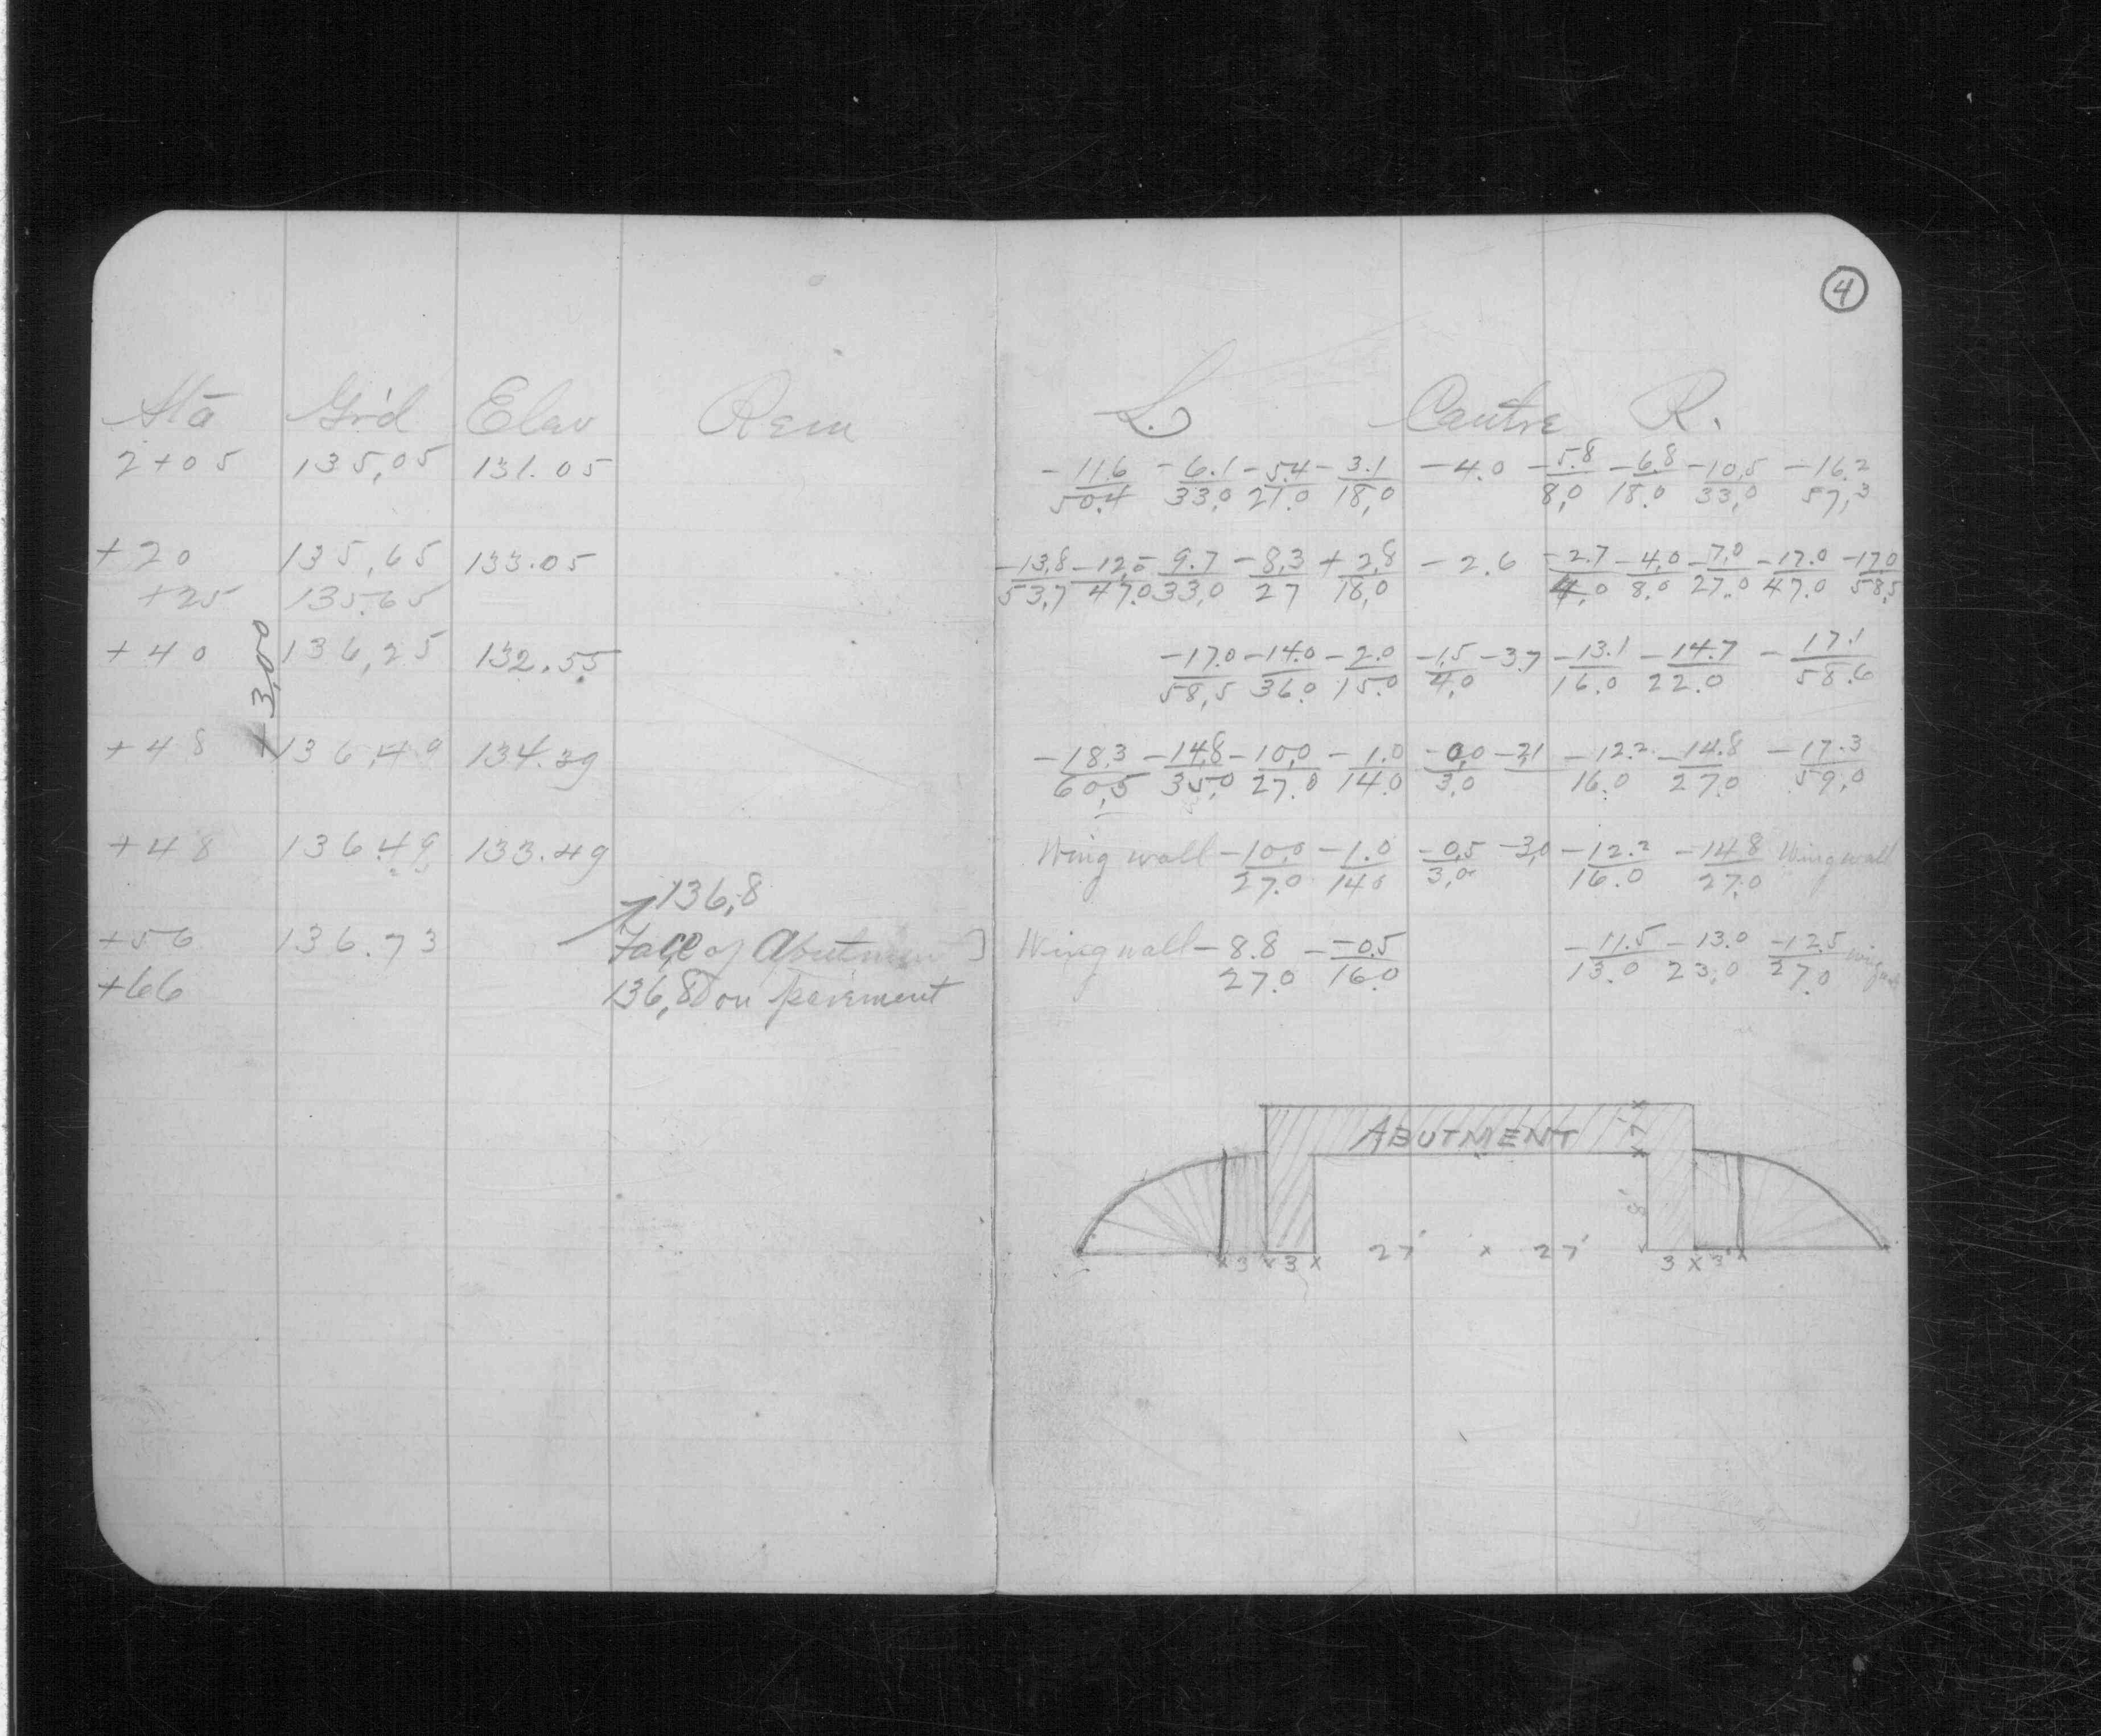 4
Sta Gr'd Elav Rem L. Centre R.
2+05 135,05 131.05 -11.6/50.4 -6.1/33,0 -5.4/21.0 -3.1/18,0 -4.0 -5.8/8,0 -6.8/18.0 -10,5/33,0 -16.2/57,3
+20 135,65 133.05 -13,8/53,7 -12,5/47.0 -9.7/33,0 -8,3/27 +2,8/18,0 -2.6 -2.7/4,0 -4,0/8.0 -7,0/27.0 -17.0/47.0 -17.0/58,5
+25 135.65
+40 136,25 132.55 -17.0/58,5 -14.0/36.0 -2.0/15.0 -1,5/4,0 -3.7 -13.1/16.0 -14.7/22.0 -17.1/58.6
3,00
+48 136,49 134.39 -18.3/60,5 -14,8/35,0 -10,0/27.0 -1.0/14.0 -0,0/3,0 -2,1 -12.2/16.0 -14.8/27.0 -17.3/59,0
+48 136.49 133.49 Wing wall -10,0/27.0 -1.0/14.0 -0,5/3,0 -3,0 -12.2/16.0 -14.8/27.0 Wing wall
136,8
+56 136.73 Face of Abutment Wing wall -8.8/27.0 -0.5/16.0 -11.5/13.0 -13.0/23,0 -12.5/27.0 wing wall
+66 136,80 on pavement
ABUTMENT 7'
8'
3 x 3 x 27' x 27' 3 x 3'